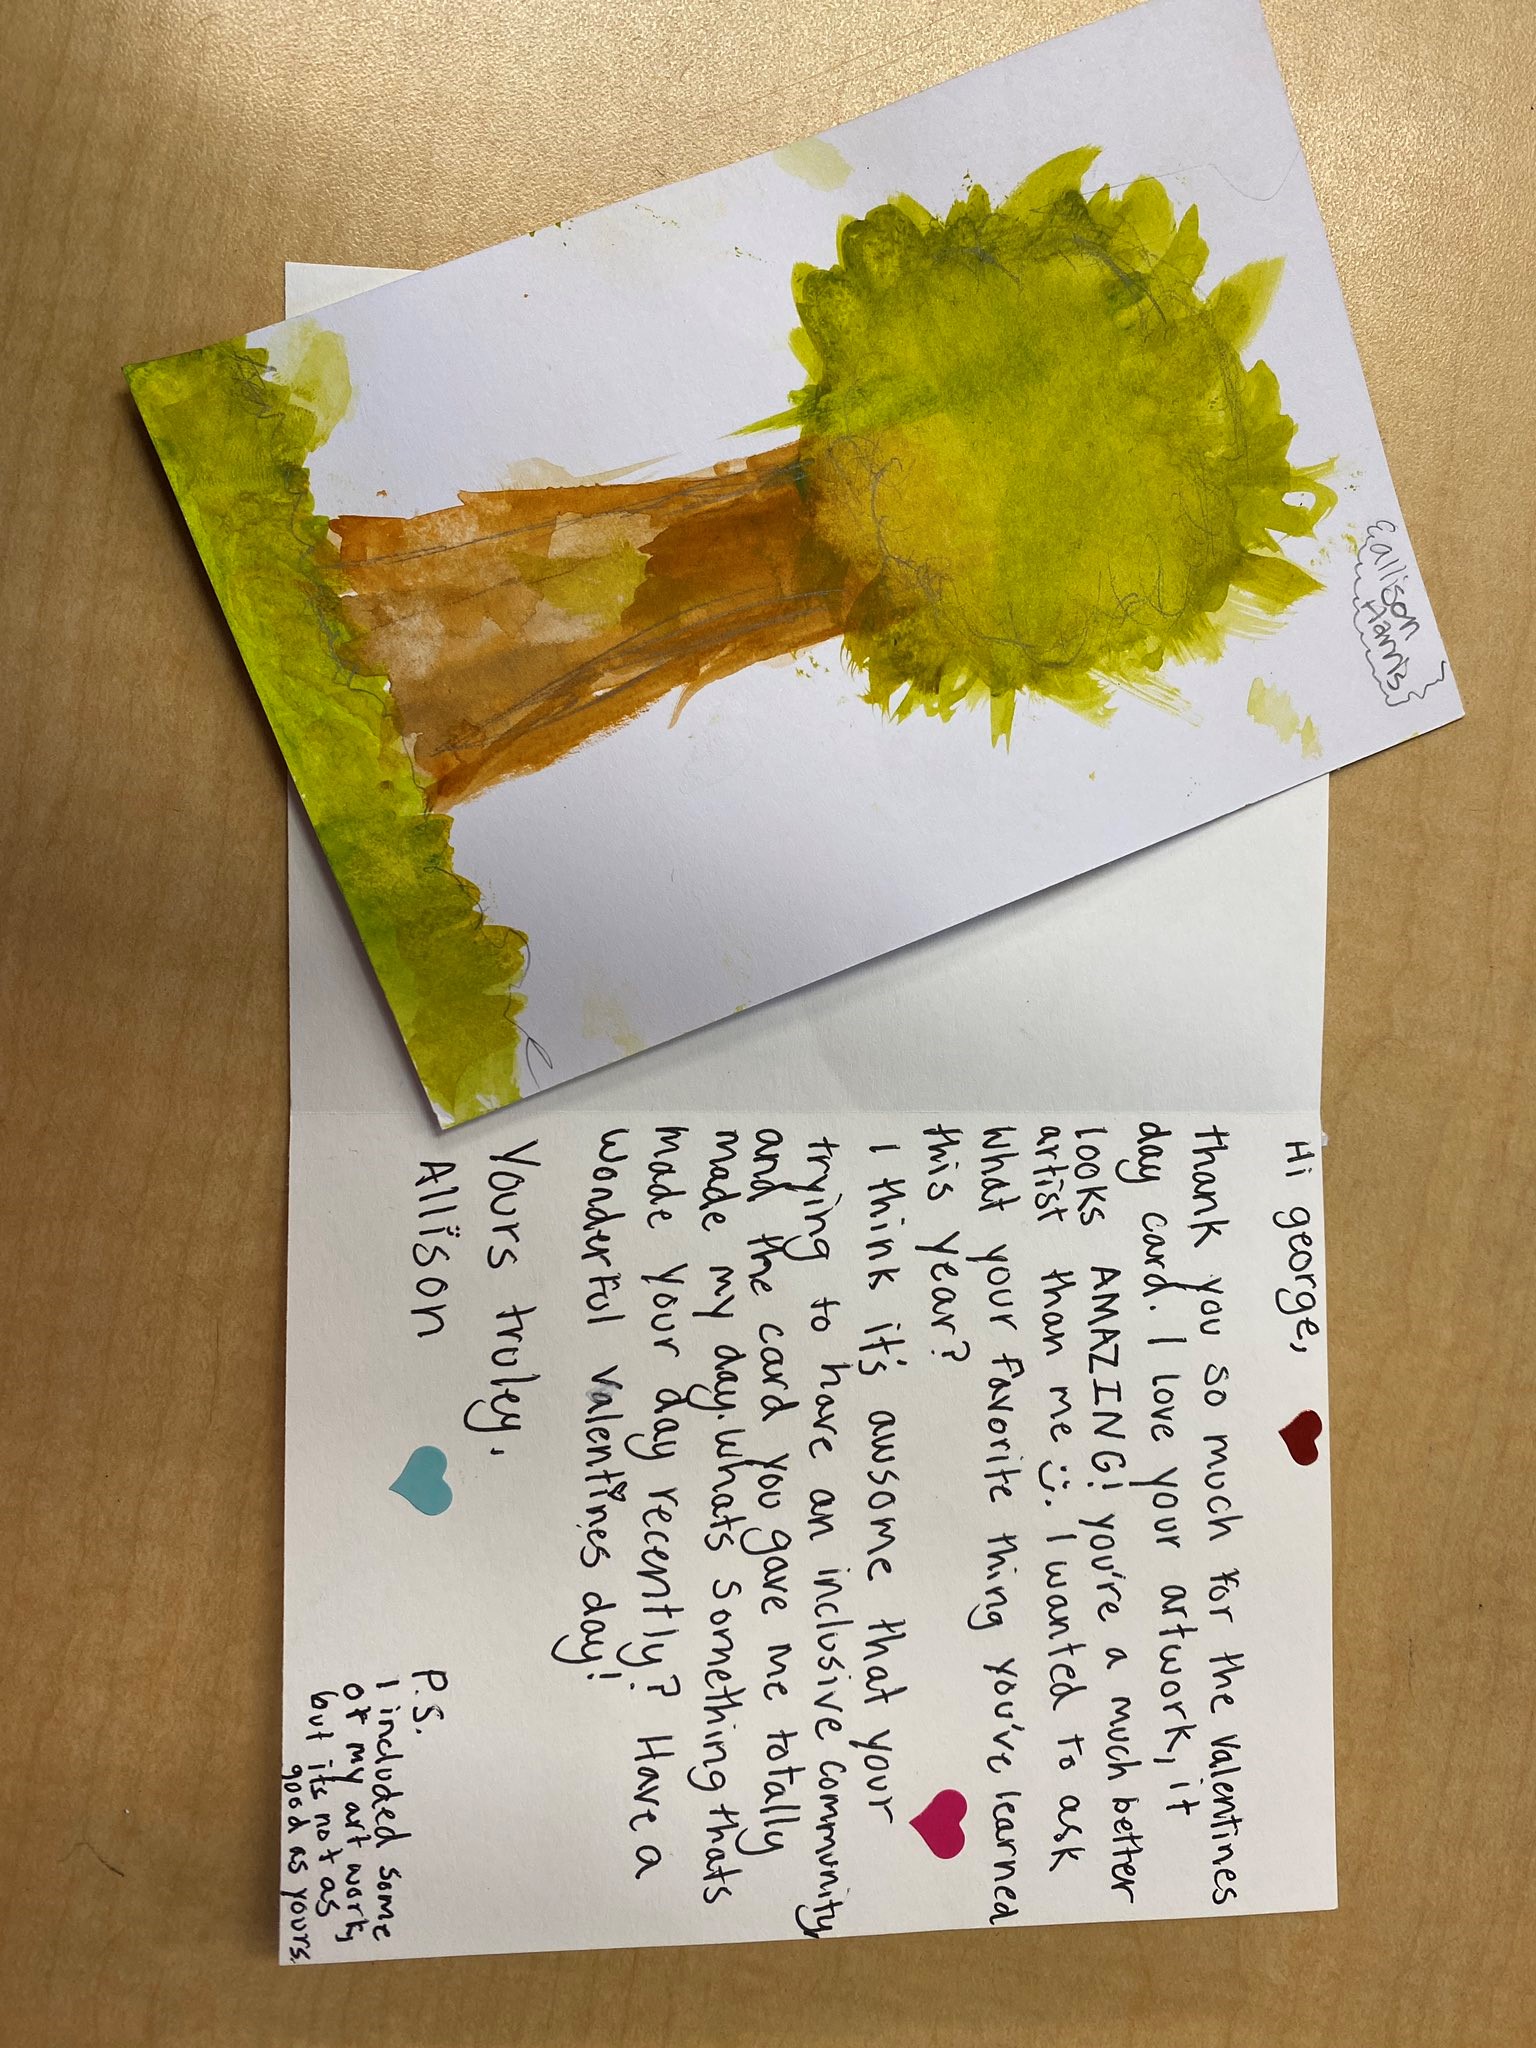 allison
Harris
Hi george,
thank you so much for the valentines
day card. I love your artwork, it
looks AMAZING! you're a much better
artist than me :). I wanted to ask
what your favorite thing you've learned
this year?
I think it's awsome that your
trying to have an inclusive community
and the card you gave me totally
made my day. whats something thats
made your day recently? Have a
wonderful valentines day!
Yours truley,
Allison
P.S.
I included some
of my art work,
but its not as
good as yours.